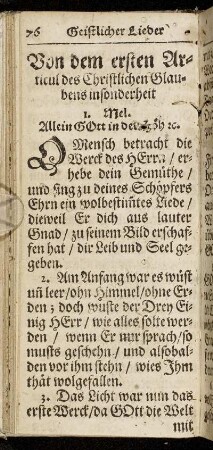 76 Geistlicher Lieder
Von dem ersten Ar-
ticul des Christlichen Glau-
bens insonderheit
1. Mel.
Allein GOtt in der Höh ꝛc.
O Mensch betracht die
Werck des HErrn / er-
hebe dein Gemüthe /
und sing zu deines Schöpfers
Ehrn ein wolbestim̃tes Liede /
dieweil Er dich aus lauter
Gnad / zu seinem Bild erschaf-
fen hat / dir Leib und Seel ge-
geben.
2. Am Anfang war es wüst
uñ leer / ohn Himmel / ohne Er-
den; doch wuste der Drey Ei-
nig HErr / wie alles solte wer-
den / wenn Er nur sprach / so
musts geschehn / und alsobal-
den vor ihm stehn / wies Ihm
thät wolgefallen.
3. Das Licht war nun das
erste Werck / da GOtt die Welt
mit